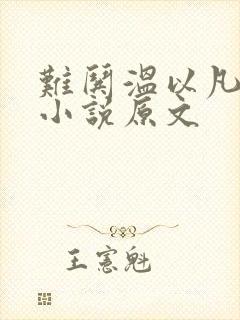 難鬨溫以凡
小說原文
王憲魁